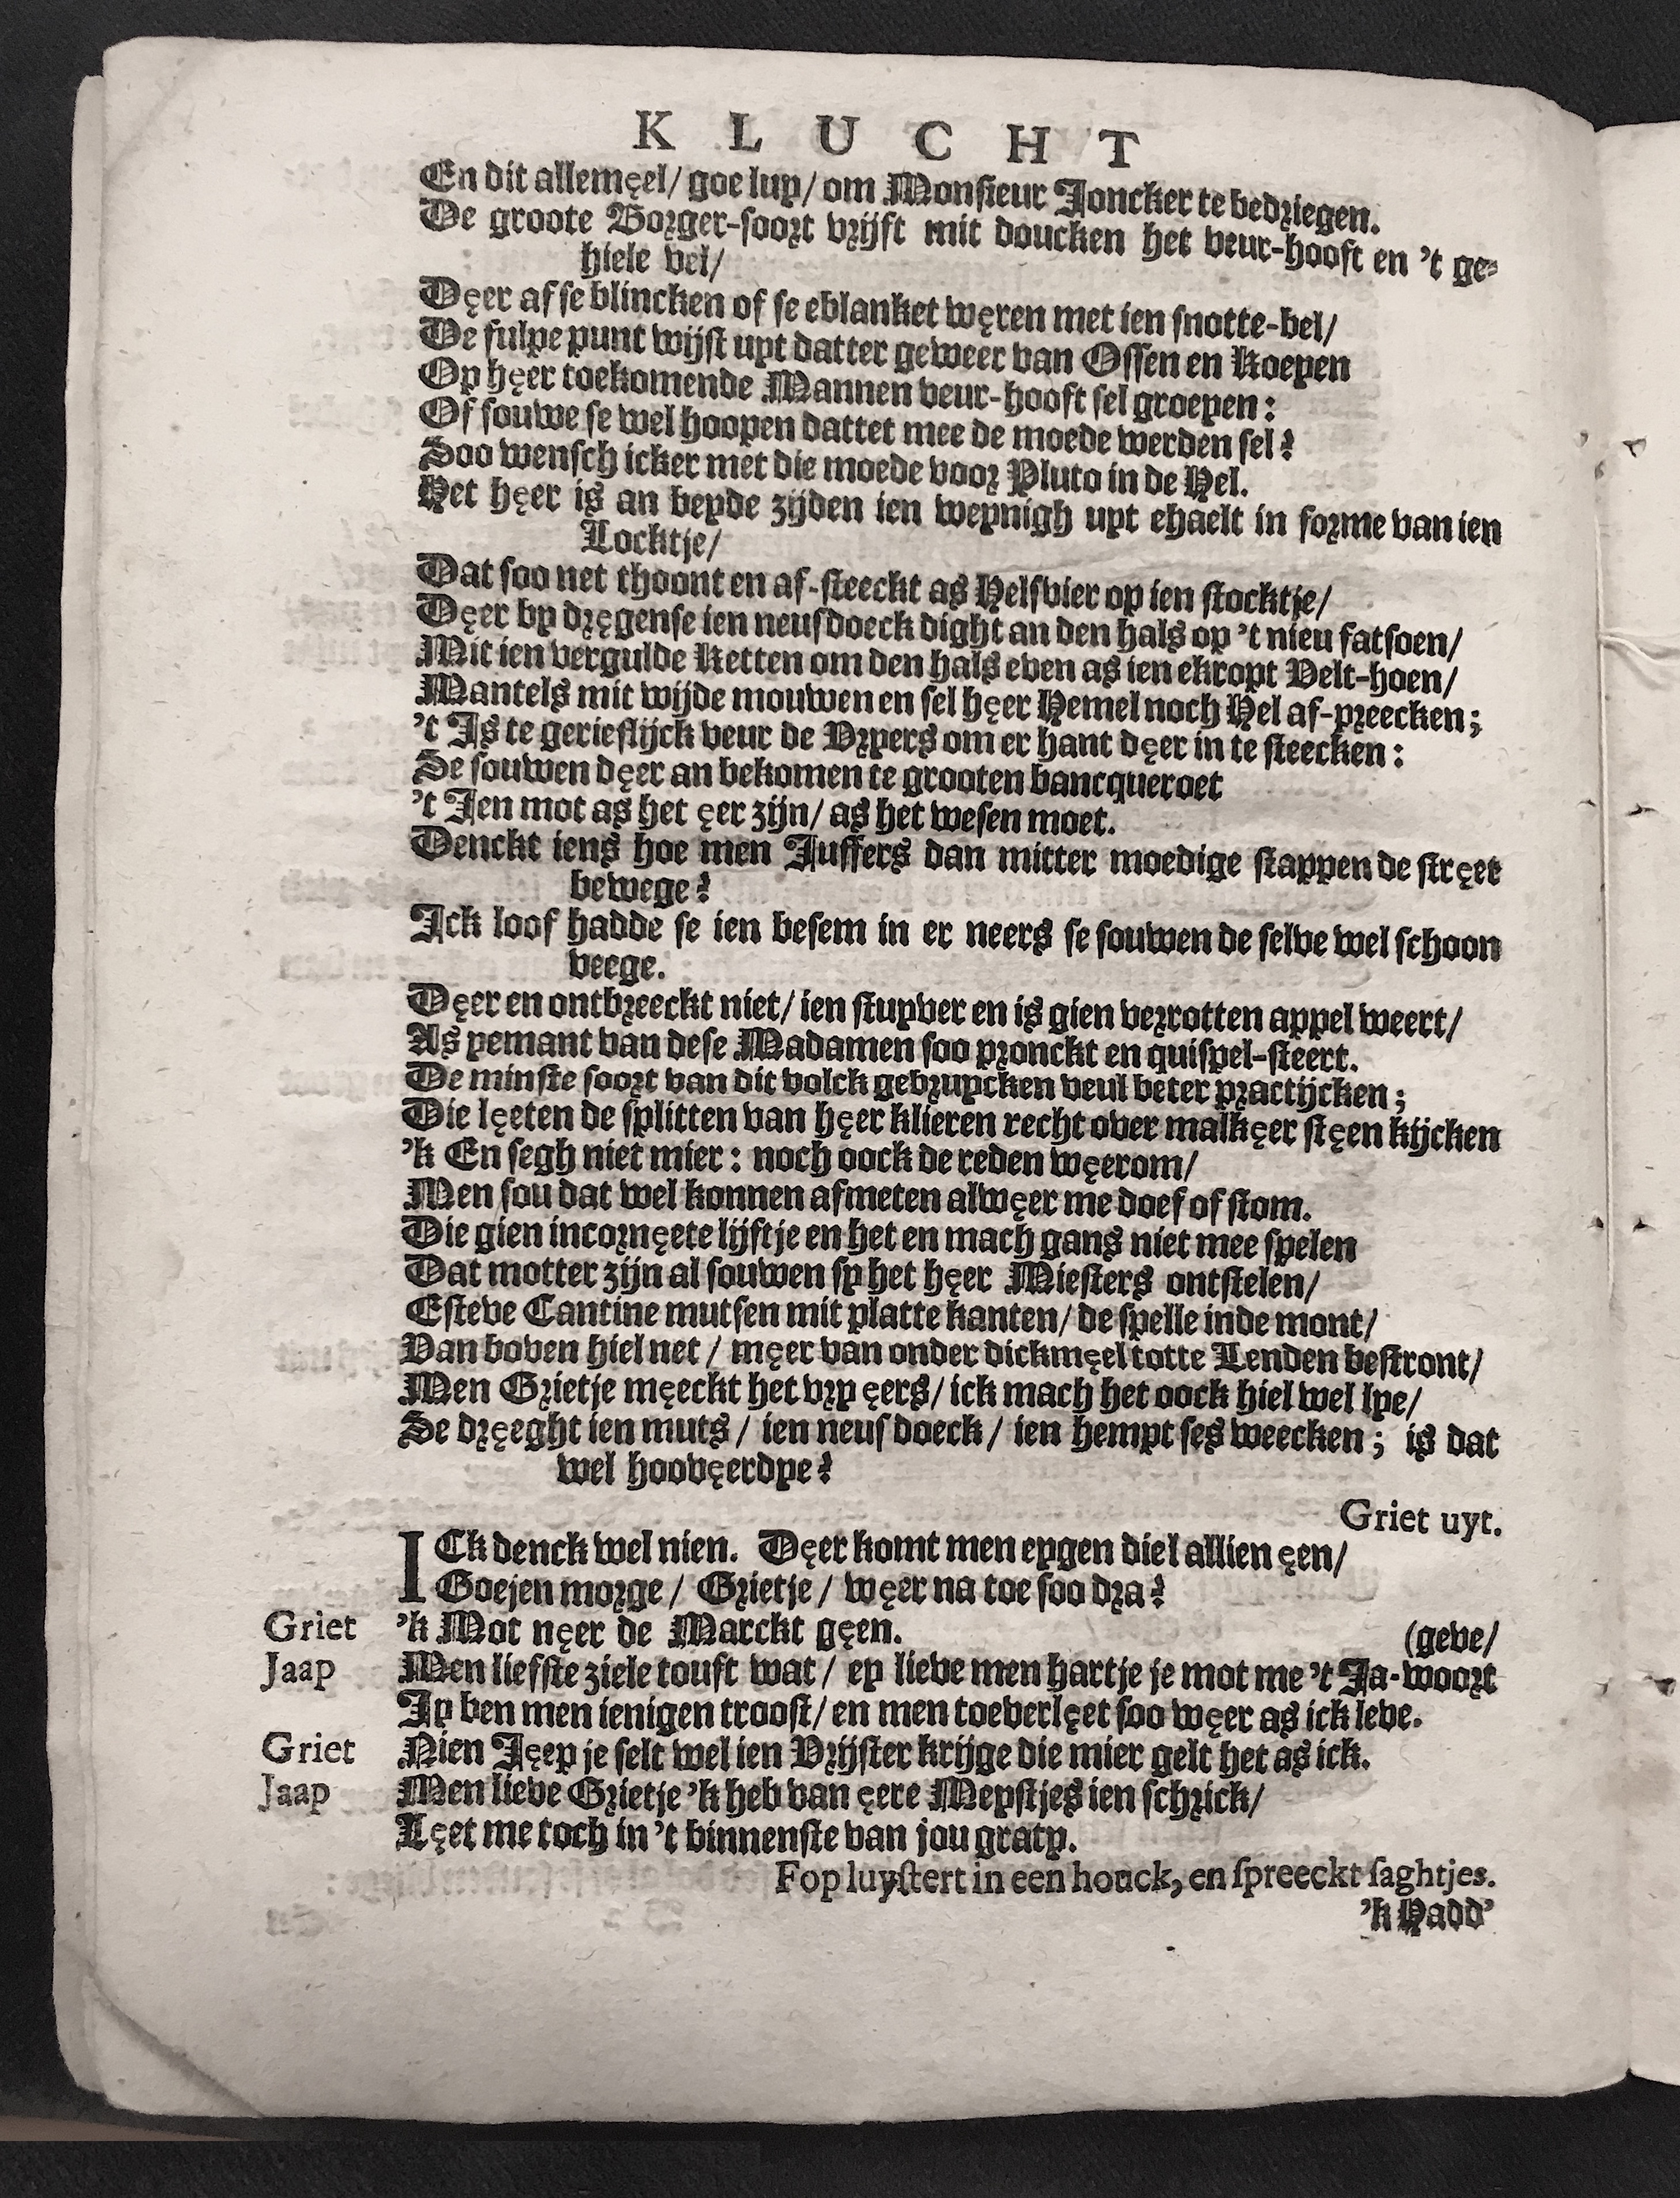 KLUCHT
En dit allemęel/ goe luy/ om Monsieur Joncker te bedriegen.
De groote Borger-soort vrijft mit doucken het veur-hooft en 't ge-
hiele vel/
Dęer af se blincken of se eblanket węren met ien snotte-bel/
De fulpe punt wijst uyt datter geweer van Ossen en Koeyen
Op hęer toekomende Mannen veur-hooft sel groeyen:
Of souwe se wel hoopen dattet mee de moede werden sel?
Soo wensch icker met die moede voor Pluto in de Hel.
Het hęer is an beyde zijden ien weynigh uyt ehaelt in forme van ien
Locktje/
Dat soo net thoont en af-steeckt as Helsvier op ien stocktje/
Dęer by dręgense ien neusdoeck dight an den hals op 't nieu fatsoen/
Mit ien vergulde Ketten om den hals even as ien ekropt Velt-hoen/
Mantels mit wijde mouwen en sel hęer Hemel noch Hel af-preecken;
't Is te gerieflijck veur de Vryers om er hant dęer in te steecken:
Se souwen dęer an bekomen te grooten bancqueroet
't Ien mot as het ęer zijn/ as het wesen moet.
Denckt iens hoe men Juffers dan mitter moedige stappen de stręet
bewege?
Ick loof hadde se ien besem in er neers se souwen de selve wel schoon
veege.
Dęer en ontbreeckt niet/ ien stuyver en is gien verrotten appel weert/
As yemant van dese Madamen soo pronckt en quispel-steert.
De minste soort van dit volck gebruycken veul beter practijcken;
Die lęeten de splitten van hęer klieren recht over malkęer stęen kijcken
'k En segh niet mier: noch oock de reden węerom/
Men sou dat wel konnen afmeten alwęer me doef of stom.
Die gien incornęete lijftje en het en mach gans niet mee spelen
Dat motter zijn al souwen sy het hęer Miesters ontstelen/
Esteve Cantine mutsen mit platte kanten/ de spelle inde mont/
Van boven hiel net / męer van onder dickmęel totte Lenden bestront/
Men Grietje męeckt het vry ęers/ ick mach het oock hiel wel lye/
Se dręeght ien muts / ien neusdoeck / ien hempt ses weecken; is dat
wel hoovęerdye?
Griet uyt.
ICk denck wel nien. Dęer komt men eygen diel allien ęen/
Goejen morge / Grietje / węer na toe soo dra?
Griet 'k Mot nęer de Marckt gęen. (geve/
Jaap Men liefste ziele touft wat / ey lieve men hartje je mot me 't Ja-woort
Jy ben men ienigen troost/ en men toeverlęet soo węer as ick leve.
Griet Nien Jęep je selt wel ien Vrijster krijge die mier gelt het as ick.
Jaap Men lieve Grietje 'k heb van ęere Meystjes ien schrick/
Lęet me toch in 't binnenste van jou graty.
Fop luystert in een houck, en spreeckt saghtjes.
'k Hadd'